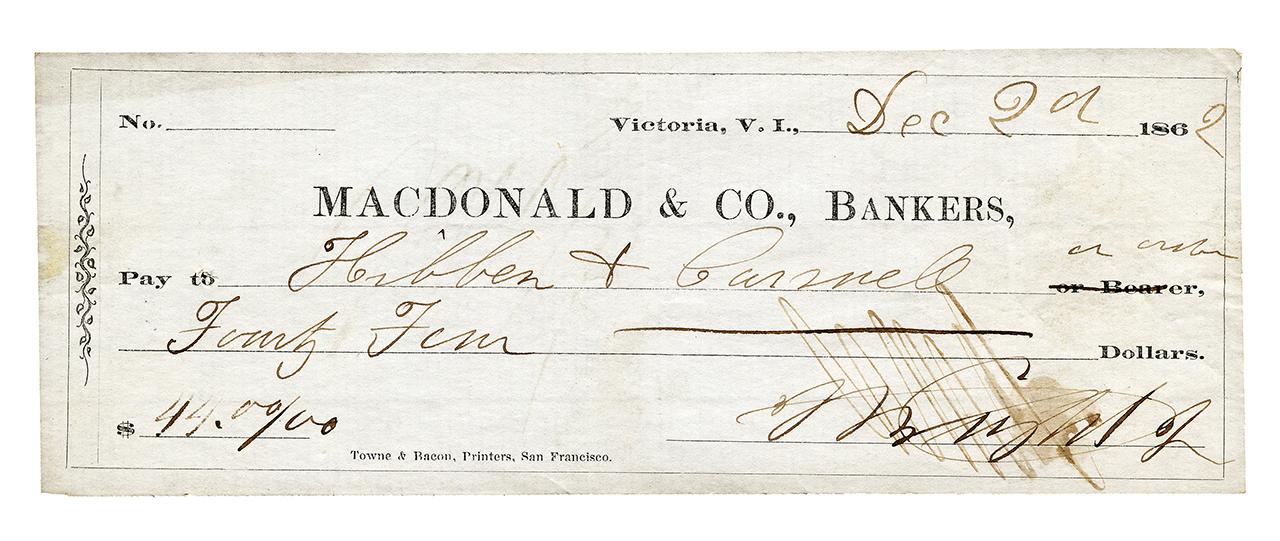 No. Victoria, V. I., Dec 2d 1862
MACDONALD & CO., BANKERS,
or order
Pay to Hibben & Carswell or Bearer,
Fourty Four Dollars.
$ 44.00/00
Wright
Towne & Bacon, Printers, San Francisco.